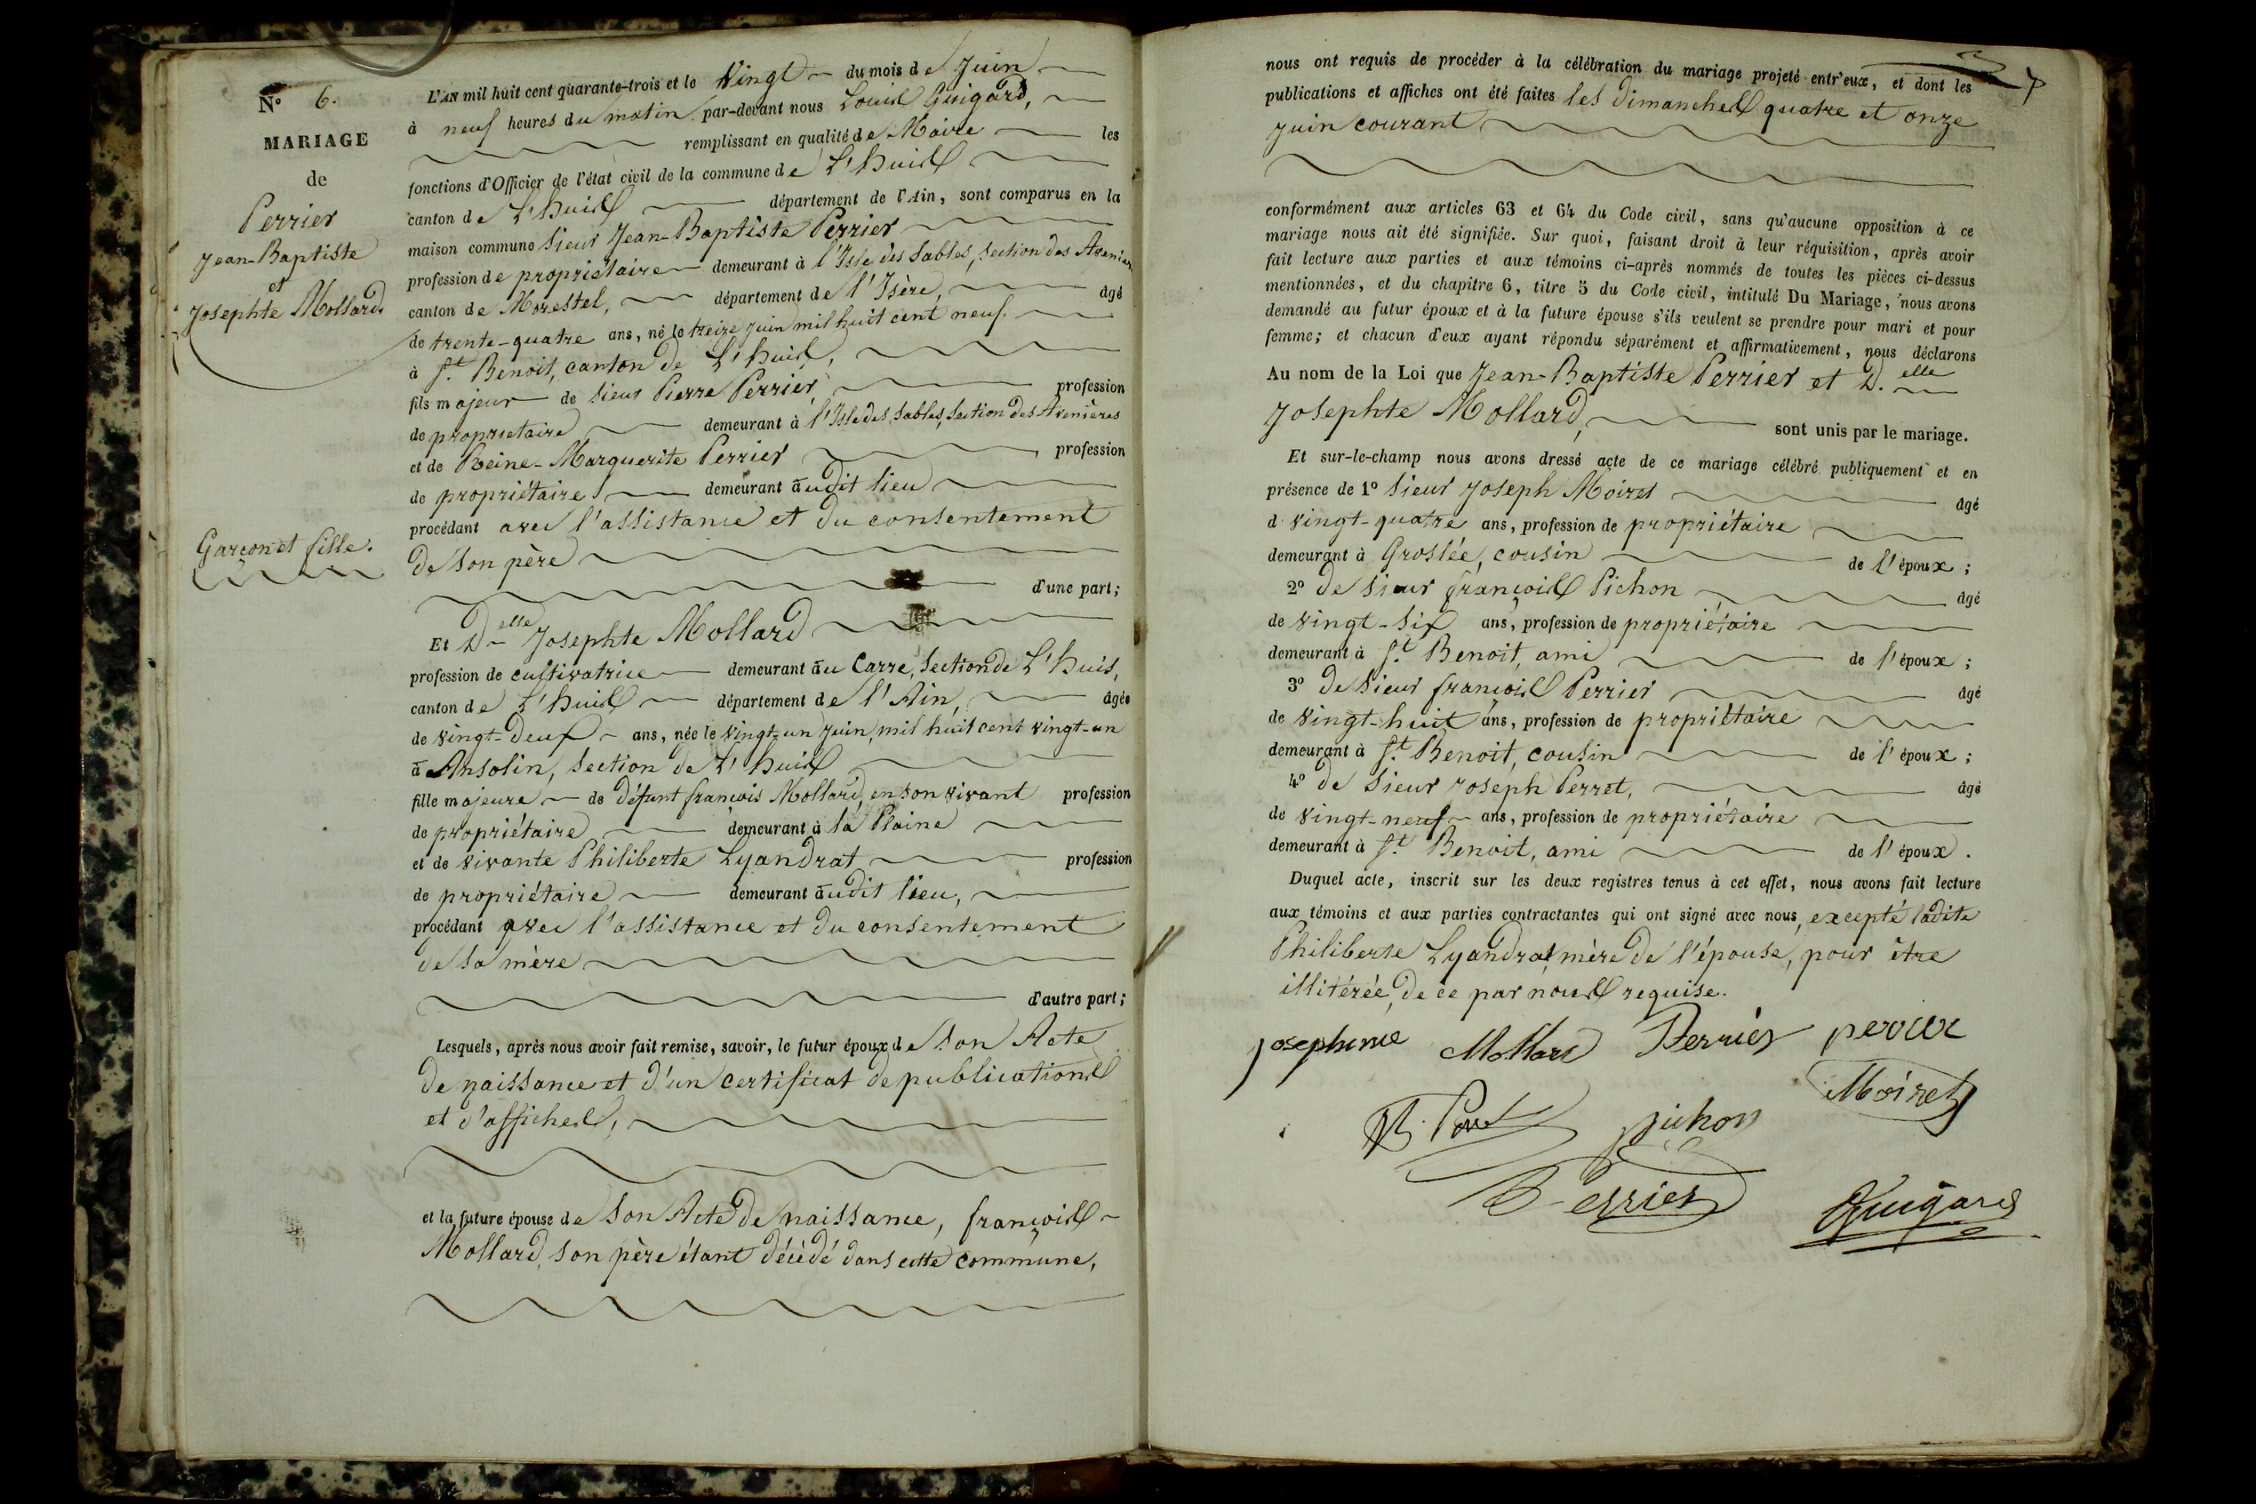 N° 6.
MARIAGE
de
Perrier
Jean-Baptiste
et
Josephte Mollard.
Garçon et fille.
L'AN mil huit cent quarante-trois et le Vingt du mois de Juin
à neuf heures du matin par-devant nous Louis Guigard,
remplissant en qualité de Maire les
fonctions d'Officier de l'état civil de la commune de L'huis
canton de L'huis département de l'Ain, sont comparus en la
maison commune Sieur Jean-Baptiste Perrier
profession de propriétaire demeurant à l'Isle des Sables, section des Avenières
canton de Morestel, département de l'Isère, âgé
de trente-quatre ans, né le treize Juin mil huit cent neuf.
à St. Benoit, canton de L'huis,
fils majeur de Sieur Pierre Perrier, profession
de propriétaire demeurant à l'Isle des Sables, section des Avenières
et de Reine-Marguerite Perrier profession
de propriétaire demeurant audit lieu
procédant avec l'assistance et du consentement
de son père
d'une part;
Et Delle Josephte Mollard
profession de cultivatrice demeurant au Carre, section de L'huis,
canton de L'huis département de l'Ain, âgée
de vingt-deux ans, née le vingt-un Juin, mil huit cent vingt-un
à Ansolin, section de L'huis
fille majeure de défunt françois Mollard, en son vivant profession
de propriétaire demeurant à la Plaine
et de vivante Philiberte Lyandrat profession
de propriétaire demeurant audit lieu,
procédant avec l'assistance et du consentement
de sa mère
d'autre part;
Lesquels, après nous avoir fait remise, savoir, le futur époux de son Acte
de naissance et d'un certificat de publications
et d'affiches,
et la future épouse de son Acte de naissance, françois
Mollard, son père étant décédé dans cette commune,
7
nous ont requis de procéder à la célébration du mariage projeté entr'eux, et dont les
publications et affiches ont été faites les dimanches quatre et onze
Juin courant
conformément aux articles 63 et 64 du Code civil, sans qu'aucune opposition à ce
mariage nous ait été signifiée. Sur quoi, faisant droit à leur réquisition, après avoir
fait lecture aux parties et aux témoins ci-après nommés de toutes les pièces ci-dessus
mentionnées, et du chapitre 6, titre 5 du Code civil, intitulé Du Mariage, nous avons
demandé au futur époux et à la future épouse s'ils veulent se prendre pour mari et pour
femme; et chacun d'eux ayant répondu séparément et affirmativement, nous déclarons
Au nom de la Loi que Jean-Baptiste Perrier et D.elle
Josephte Mollard, sont unis par le mariage.
Et sur-le-champ nous avons dressé acte de ce mariage célébré publiquement et en
présence de 1° Sieur Joseph Moiret âgé
d vingt-quatre ans, profession de propriétaire
demeurant à Groslée, cousin de l'époux;
2° de Sieur françois Pichon âgé
de vingt-six ans, profession de propriétaire
demeurant à St. Benoit, ami de l'époux;
3° de Sieur françois Perrier âgé
de vingt-huit ans, profession de propriétaire
demeurant à St. Benoit, cousin de l'époux;
4° de Sieur Joseph Perret, âgé
de vingt-neuf ans, profession de propriétaire
demeurant à St. Benoit, ami de l'époux.
Duquel acte, inscrit sur les deux registres tenus à cet effet, nous avons fait lecture
aux témoins et aux parties contractantes qui ont signé avec nous, excepté ladite
Philiberte Lyandrat, mère de l'épouse, pour être
illitérée, de ce par nous requise.
josephine Mollard Perrier perrier
Moiret
pichon
Perrier
Guigard